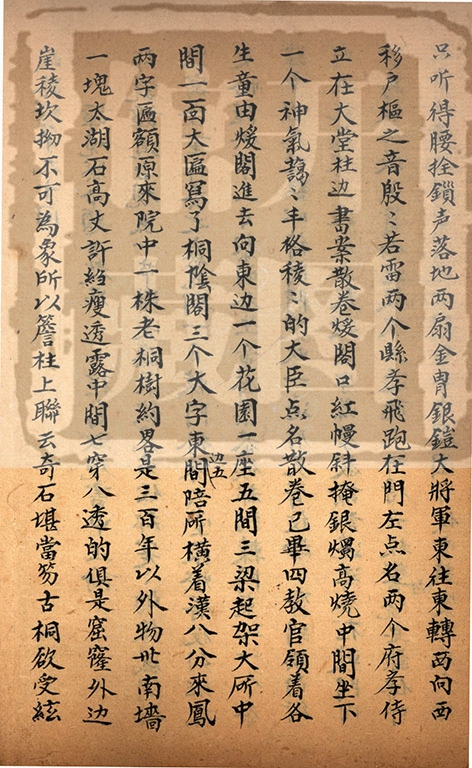 只听得腰拴鎖声落地两扇金胄銀鎧大將軍東往東轉西向西
移戶樞之音殷〻若雷两个縣孝飛跑在門左点名两个府孝侍
立在大堂柱边書案散卷煖閣口紅幔斜掩銀燭高燒中間坐下
一个神氣藹〻丰格稜〻的大臣点名散卷已畢四教官領着各
生童由煖閣進去向東边一个花園一座五間三梁起架大所中
間一面大匾寫了桐陰閣三个大字東間边五陪所橫着漢八分來鳳
两字匾額原來院中一株老桐樹約畧是三百年以外物卅南墻
一塊太湖石高丈許縐瘦透露中間七穿八透的俱是窟窿外边
崖稜坎拗不可為象所以簷柱上聯云奇石堪當笏古桐欲受絃